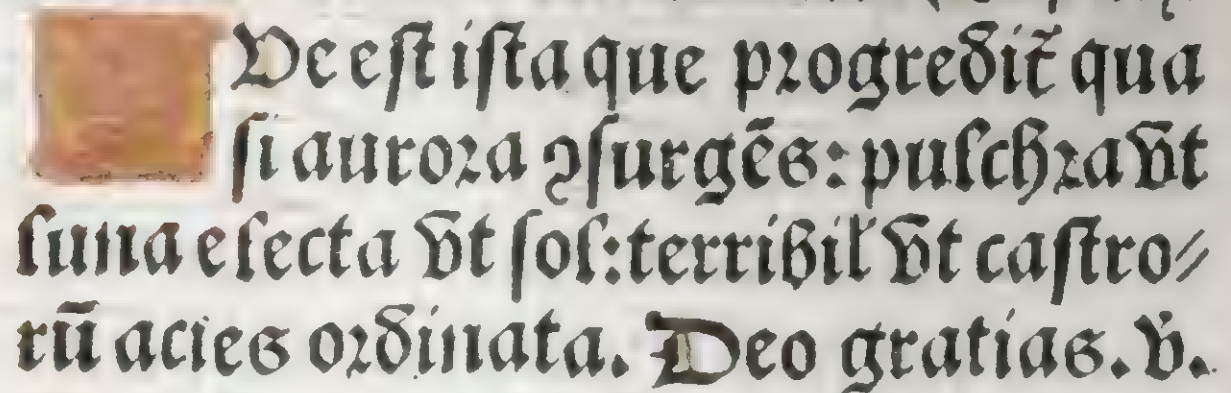 Ve est ista que progredit̃ qua
si aurora ꝯsurgẽs: pulchra vt
luna electa vt sol: terribil' vt castro⸗
rū acies ordinata. Deo gratias. v̇.